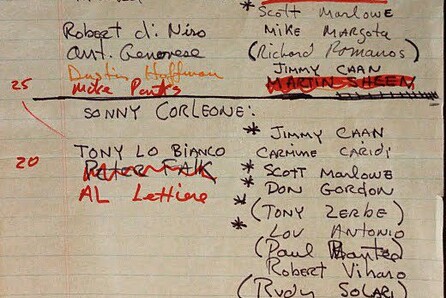 * Scott Marlowe
Robert di Niro
Mike Margota
Ant. Genovese
(Richard Romanos)
Dustin Hoffman
JIMMY CAAN
Mike Parks
MARTIN SHEEN
25
SONNY CORLEONE:
* JIMMY CAAN
TONY LO BIANCO
CARMINE CARIDI
20
PETER FALK
* SCOTT MARLOWE
AL Lettieri
* DON GORDON
* (TONY ZERBE)
* LOU ANTONIO
(Paul
Robert Viharo
(RUDY SOLARI)